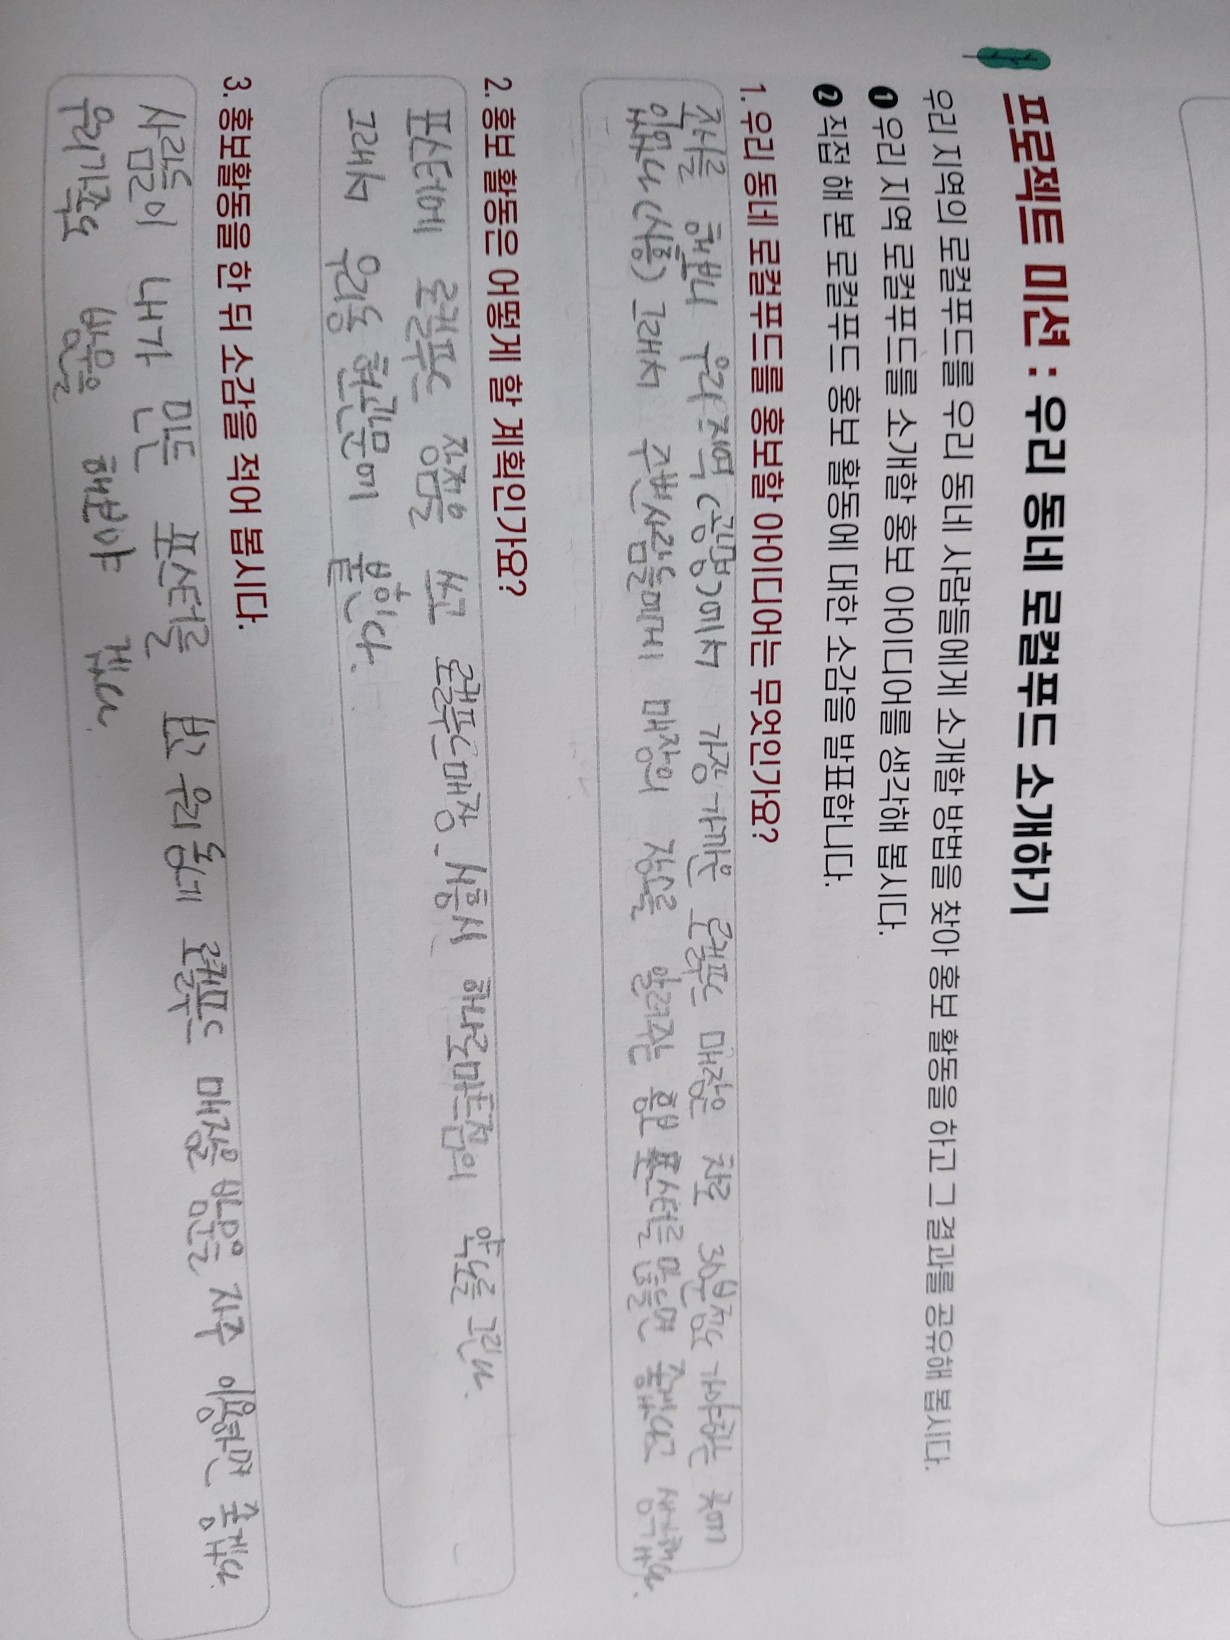 프로젝트 미션 : 우리 동네 로컬푸드 소개하기
우리 지역의 로컬푸드를 우리 동네 사람들에게 소개할 방법을 찾아 홍보 활동을 하고 그 결과를 공유해 봅시다.
❶ 우리 지역 로컬푸드를 소개할 홍보 아이디어를 생각해 봅시다.
❷ 직접 해 본 로컬푸드 홍보 활동에 대한 소감을 발표합니다.
1. 우리 동네 로컬푸드를 홍보할 아이디어는 무엇인가요?
조사를 해보니 우리지역(광명)에서 가장 가까운 로컬푸드 매장은 차로 30분정도 가야하는 곳에
있었다(시흥) 그래서 주변사람들에게 매장의 장소를 알려주는 홍보 포스터를 만들면 좋겠다고 생각했다.
2. 홍보 활동은 어떻게 할 계획인가요?
포스터에 로컬푸드 장점을 쓰고 로컬푸드매장_시흥시 하나로마트점의 약도를 그린다.
그래서 우리동 현관문에 붙인다.
3. 홍보활동을 한 뒤 소감을 적어 봅시다.
사람들이 내가 만든 포스터를 보고 우리동네 로컬푸드 매장을 방문을 자주 이용하면 좋겠다.
우리가족도 방문을 해봐야 겠다.